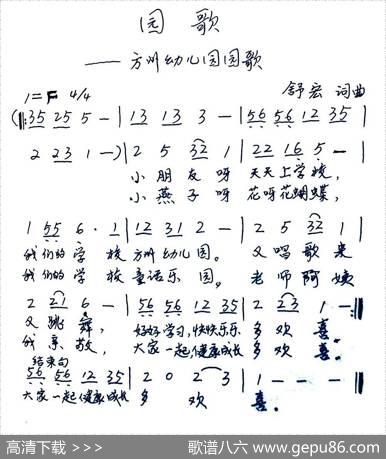 园歌
——方州幼儿园园歌
1=F 4/4
舒宏 词曲
(‖: 35 25 5 - | 13 13 3 - | 56 56 12 35 |
2 23 1 -) | 2 5 32 1 | 22 16 5 - |
小 朋 友 呀 天天上学校,
小 燕 子 呀 花呀花蝴蝶,
1 55 6 · 1 | 12 31 2 - | 2 5 32 1 |
我们的学 校 方州幼儿园。 又唱歌来
我们的学 校 童话乐 园。 老师阿姨
2 21 6 - | 56 56 12 35 | 2 23 1 - :‖
又跳舞, 好好学习,快快乐乐 多欢 喜。
我亲敬, 大家一起健康成长 多欢 喜。
结束句
56 56 12 35 | 2 0 2 3 | 1 - - - ‖
大家一起健康成长 多 欢 喜。
高清下载 >>> 歌谱八六 www.gepu86.com